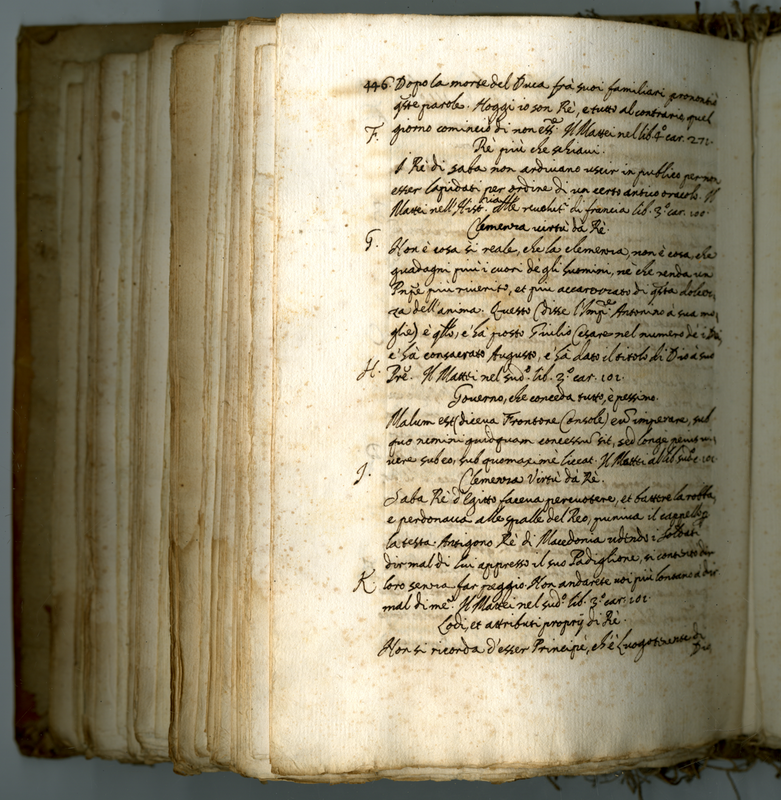 446. Dopo la morte del Duca frà suoi familiari prononciò
q̃ste parole. Hoggi io son Rè, e tutto al contrario quel
giorno cominciò di non ess.e Il Mattei nel lib. 4.º car. 271.
F. Rè più che schiavi.
I Rè di Saba non ardivano uscir in publico per non
esser lapidati per ordine di un certo antico oracolo. Il
Mattei nell'Hist.ria delle revolut.i di francia lib. 3.º car. 100.
Clemenza virtù da Rè.
G. Non è cosa si reale, che la clemenza, non è cosa che
guadagni più i cuori de gli huomini, nè che renda un
Pnp̃e più riverito, et più accarezzato di q̃sta dolcez,
za dell'anima. Questo (disse l'Imp.re Antonino à sua mo,
glie) è q̃llo, c'hà posto Giulio Cesare nel numero de i Dei
c'hà consacrato Augusto, c'hà dato il titolo di Pio à suo
Prẽ. Il Mattei nel sud.º lib. 3.º car. 101.
H. Governo, che conceda tutto, è pessimo.
Malum est (diceva Frontone Console) eũ imperare, sub
quo nemini quidquam concessũ sit, sed longe peius
vere sub eo, sub quo maximè liceat. Il Mattei al lib. sud.º 101.
I. Clemenza Virtù da Rè.
Saba Rè d'Egitto faceva percuotere, et battre la robba,
e perdonava alle spalle del Reo, puniva il cappello p
la testa. Antigono Rè di Macedonia udendo i soldati
dir mal di lui appresso il suo Padiglione, si contentò dir
loro senza far peggio. Non andarete voi più lontano à dir
mal di me? Il Mattei nel sud.º lib. 3.º car. 101.
K. Lodi, et attributi proprij di Rè.
Non si ricorda d'esser Principe, ch'è Luogotenente di
Dio